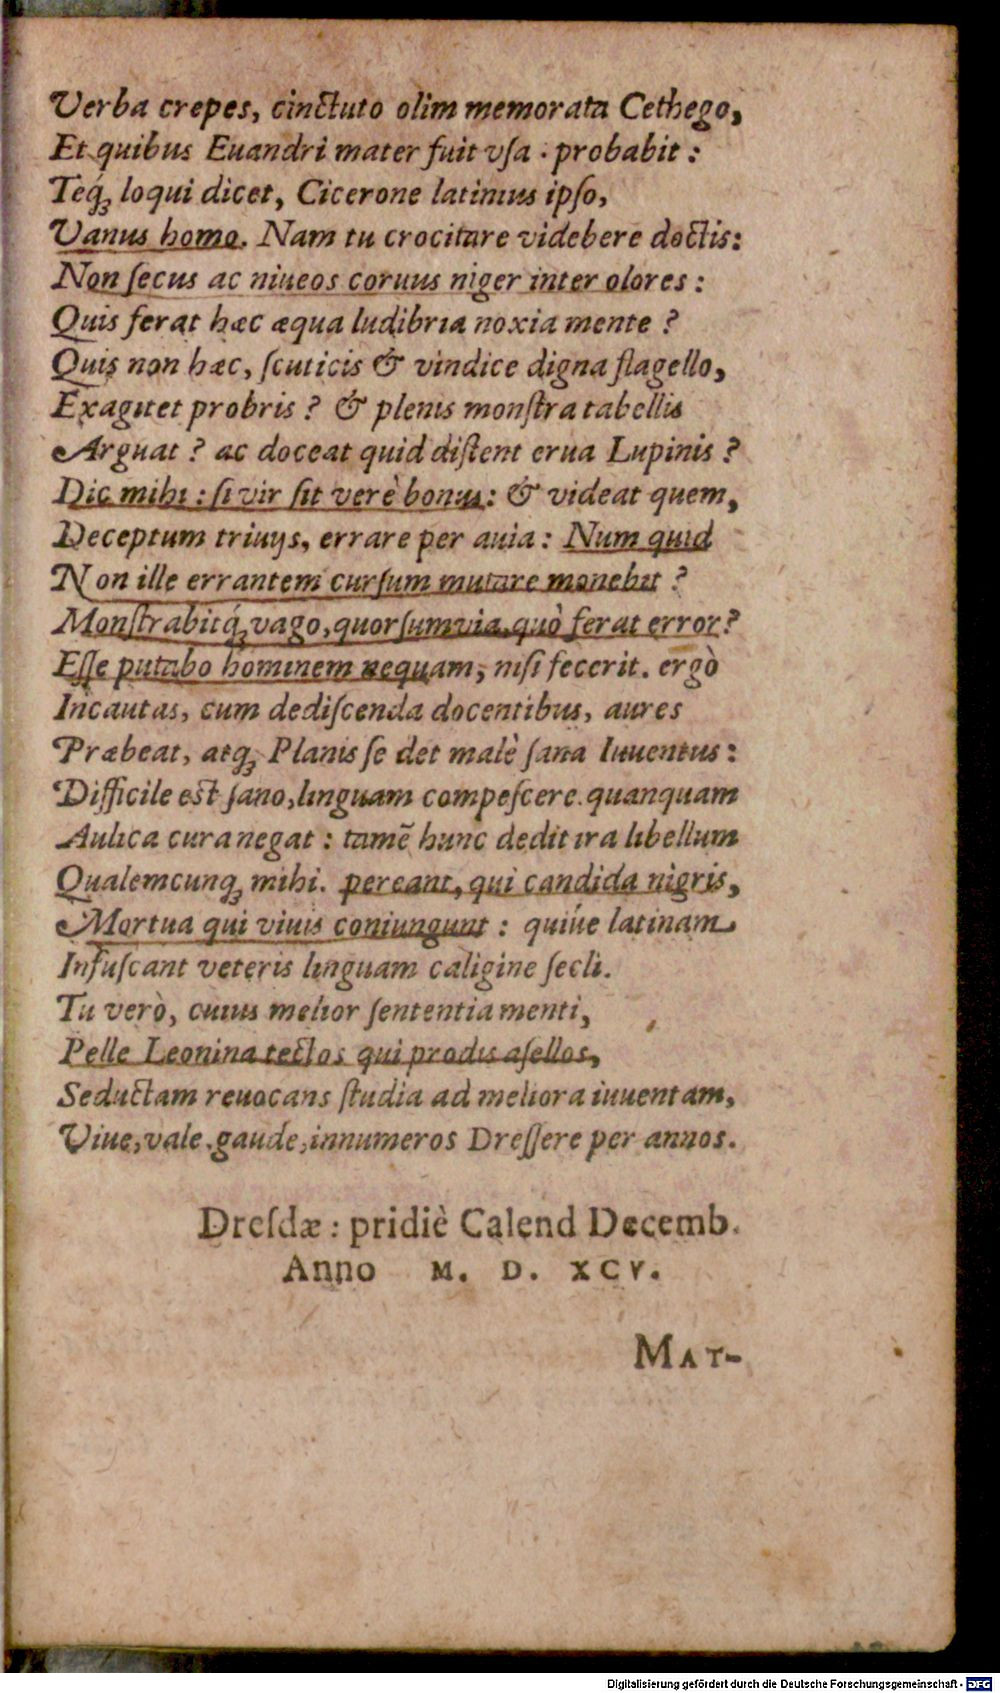 Verba crepes, cinctuto olim memorata Cethego,
Et quibus Euandri mater fuit vſa . probabit :
Teq́ꝫ loqui dicet, Cicerone latinius ipſo,
Vanus homo. Nam tu crocitare videbere doctis:
Non ſecus ac niueos coruus niger inter olores :
Quis ferat hæc æqua ludibria noxia mente ?
Quis non hæc, ſcuticis & vindice digna flagello,
Exagitet probris ? & plenis monſtra tabellis
Arguat ? ac doceat quid diſtent erua Lupinis ?
Dic mihi : ſi vir ſit verè bonus: & videat quem,
Deceptum triuijs, errare per auia : Num quid
Non ille errantem curſum mutare monebit ?
Monſtrabitq́ꝫ vago, quorſum via, quò ferat error?
Eſſe putabo hominem nequam, niſi fecerit. ergò
Incautas, cum dediſcenda docentibus, aures
Præbeat, atqꝫ Planis ſe det malè ſana Iuuentus:
Difficile est ſano, linguam compeſcere. quanquam
Aulica cura negat : tamē hunc dedit ira libellum
Qualemcunqꝫ mihi. pereant, qui candida nigris,
Mortua qui viuis coniungunt : quiúe latinam
Infuſcant veteris linguam caligine ſecli.
Tu verò, cuius melior ſententia menti,
Pelle Leonina tectos qui prodis aſellos,
Seductam reuocans ſtudia ad meliora iuuentam,
Viue, vale, gaude, innumeros Dreſſere per annos.
Dreſdæ : pridiè Calend Decemb.
Anno M. D. XCV.
MAT-
Digitalisierung gefördert durch die Deutsche Forschungsgemeinschaft - DFG